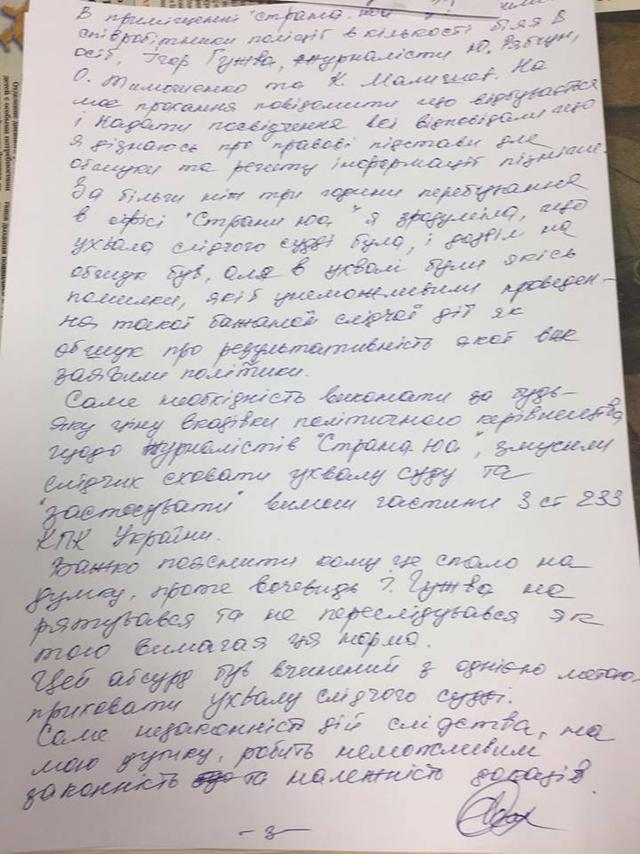 В приміщенні "страна.юа"
співробітники поліції в кількості біля 8
осіб, Ігор Гужва, журналісти Ю.
О. Тимошенко та К. Малишев. На
моє прохання повідомити що відбувається
і надати посвідчення всі відповідали що
я дізнаюсь про правові підстави для
обшуку та речиту інформації пізніше.
За більш ніж три години перебування
в офісі "Страни юа" я зрозуміла, що
ухвала слідчого судді була, і дозвіл на
обшук був, але в ухвалі були якісь
помилки, які б унеможливили проведен-
ня такої бажаної слідчої дії як
обшук про результативність якої вже
заявили політики.
Саме необхідність виконати за будь-
яку ціну вказівки політичного керівництва
щодо журналістів "Страна.юа", змусили
слідчих сховати ухвалу суду та
"застосувати" вимоги частини 3 ст 233
КПК України.
Важко пояснити кому це спало на
думку, проте вочевидь І. Гужва не
рятувався та не переслідувався як
того вимагає ця норма.
Цей абсурд був вчинений з однією метою
приховати ухвалу слідчого судді.
Саме незаконність дій слідства, на
мою думку, робить неможливим
законність та належність доказів.
- 3 -